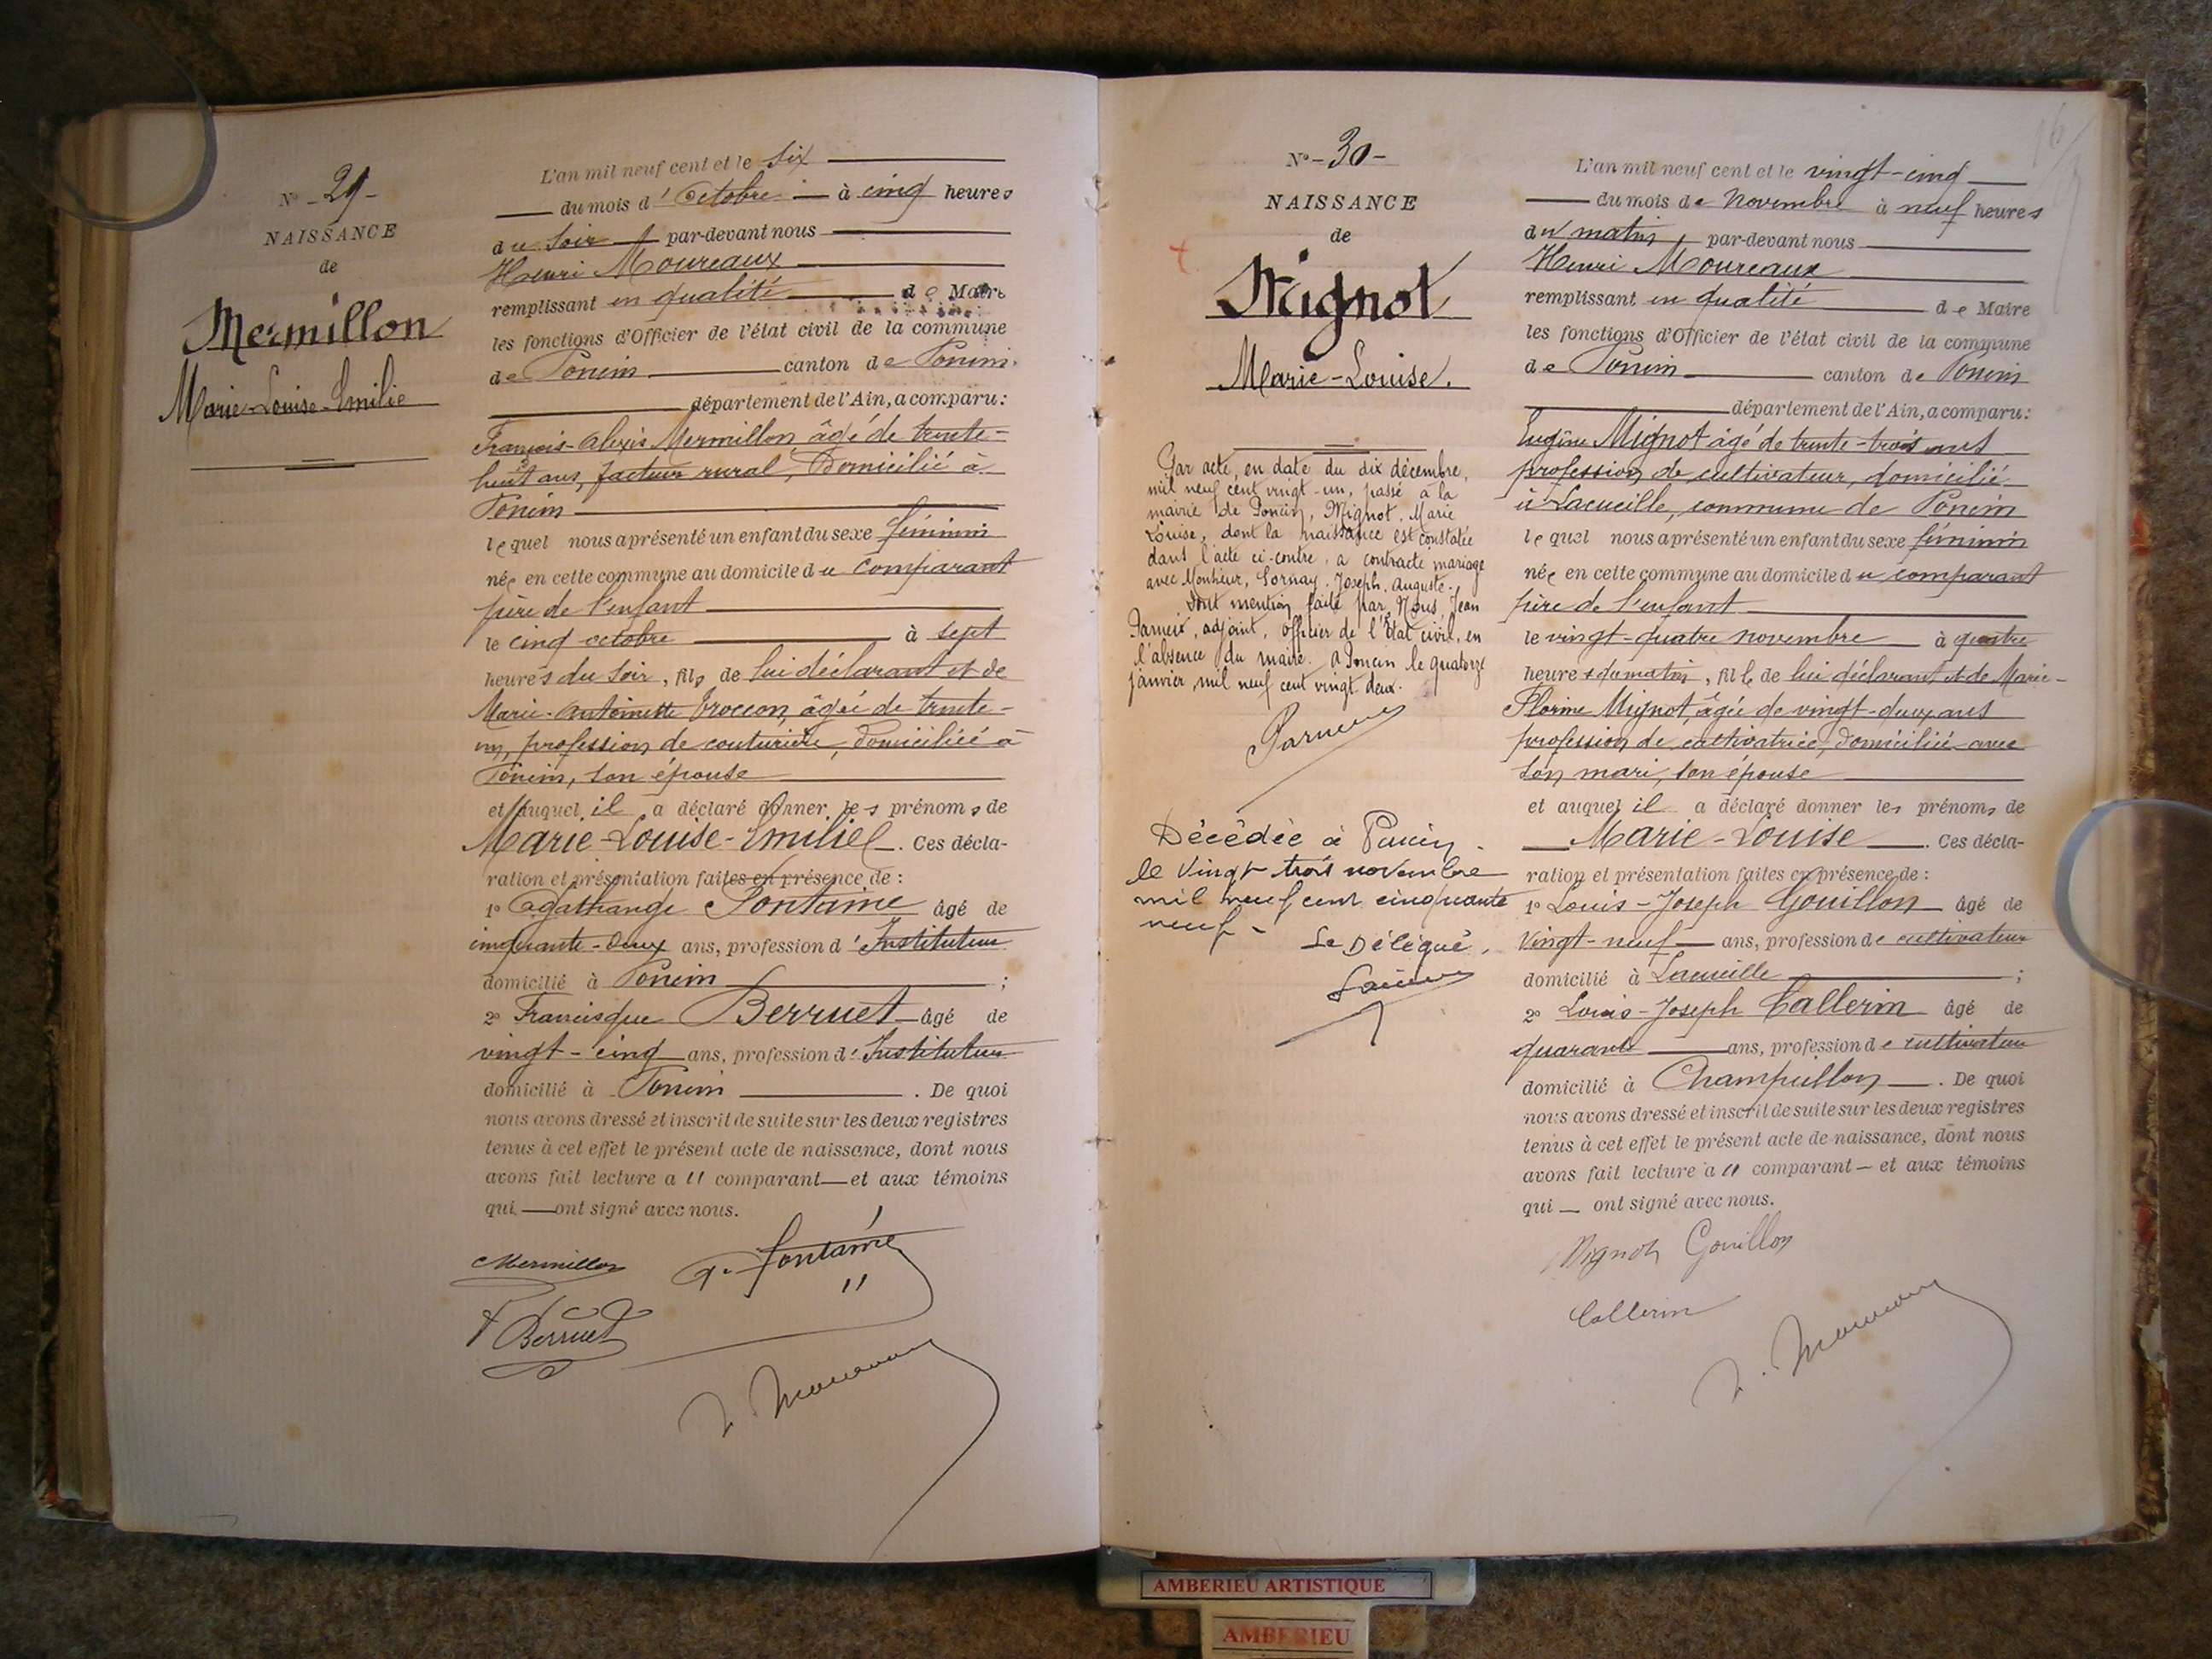 N° - 29 -
NAISSANCE
de
Mermillon
Marie-Louise-Emilie
L'an mil neuf cent et le six
du mois d'Octobre à cinq heures
du soir par-devant nous
Henri Moureaux
remplissant en qualité de Maire
les fonctions d'Officier de l'état civil de la commune
de Poncin canton de Poncin.
département de l'Ain, a comparu:
François-Alexis Mermillon âgé de trente-
huit ans, facteur rural, Domicilié à
Poncin
lequel nous a présenté un enfant du sexe féminin
née en cette commune au domicile du comparant
père de l'enfant
le cinq octobre à sept
heures du soir, fille de lui déclarant et de
Marie-Antoinette Troccon, âgée de trente-
un, profession de couturière, domiciliée à
Poncin, son épouse
et auquel il a déclaré donner les prénoms de
Marie-Louise-Emilie. Ces décla-
ration et présentation faites en présence de :
1° Agathange Fontaine âgé de
cinquante-deux ans, profession d'Instituteur
domicilié à Poncin ;
2° Francisque Berruet âgé de
vingt-cinq ans, profession d'Instituteur
domicilié à Poncin . De quoi
nous avons dressé et inscrit de suite sur les deux registres
tenus à cet effet le présent acte de naissance, dont nous
avons fait lecture au comparant et aux témoins
qui ont signé avec nous.
Mermillon A. Fontaine
F Berruet
H. Moureaux
N° - 30 -
NAISSANCE
de
Mignot
Marie-Louise.
Par acte, en date du dix décembre,
mil neuf cent vingt-un, passé à la
mairie de Poncin, Mignot, Marie
Louise, dont la naissance est constatée
dans l'acte ci-contre, a contracté mariage
avec Monsieur, Cornay. Joseph. Auguste.
Dont mention faite par Nous Jean
adjoint, officier de l'Etat civil, en
l'absence du maire. A Poncin le quatorze
janvier, mil neuf cent vingt deux.
Décédée à Poncin
le Vingt trois novembre
mil neuf cent cinquante
neuf -
Le Délégué,
16
L'an mil neuf cent et le vingt-cinq
du mois de Novembre à neuf heures
du matin par-devant nous
Henri Moureaux
remplissant en qualité de Maire
les fonctions d'Officier de l'état civil de la commune
de Poncin canton de Poncin
département de l'Ain, a comparu:
Eugène Mignot âgé de trente-trois ans
profession de cultivateur, domicilié
à Lacueille, commune de Poncin
lequel nous a présenté un enfant du sexe féminin
née en cette commune au domicile du comparant
père de l'enfant
le vingt-quatre novembre à quatre
heures du matin, fille de lui déclarant et de Marie-
Florine Mignot, âgée de vingt-deux ans
profession de cultivatrice, domiciliée avec
son mari, son épouse
et auquel il a déclaré donner les prénoms de
Marie-Louise . Ces décla-
ration et présentation faites en présence de :
1° Louis-Joseph Gouillon âgé de
vingt-neuf ans, profession de cultivateur
domicilié à Lacueille ;
2° Louis-Joseph Callerin âgé de
quarante ans, profession de cultivateur
domicilié à Champeillon . De quoi
nous avons dressé et inscrit de suite sur les deux registres
tenus à cet effet le présent acte de naissance, dont nous
avons fait lecture au comparant et aux témoins
qui ont signé avec nous.
Mignot Gouillon
Callerin
H. Moureaux
AMBERIEU ARTISTIQUE
AMBERIEU